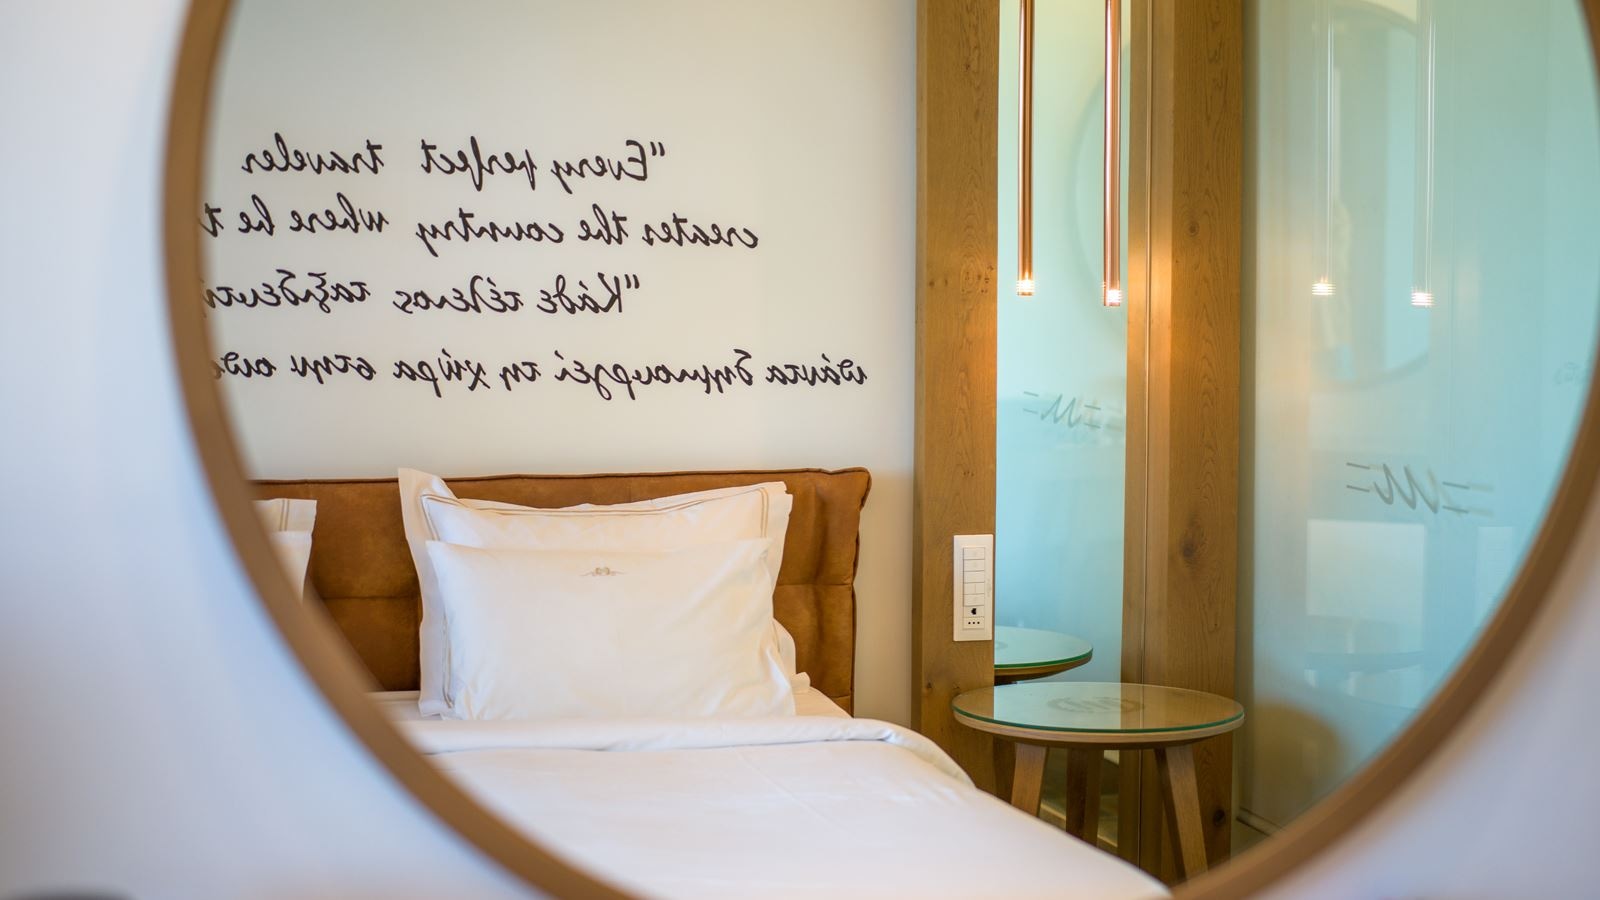 "Every perfect traveler
creates the country where he t
"Κάθε τέλειος ταξιδευτή
πάντα δημιουργεί τη χώρα στην οπο